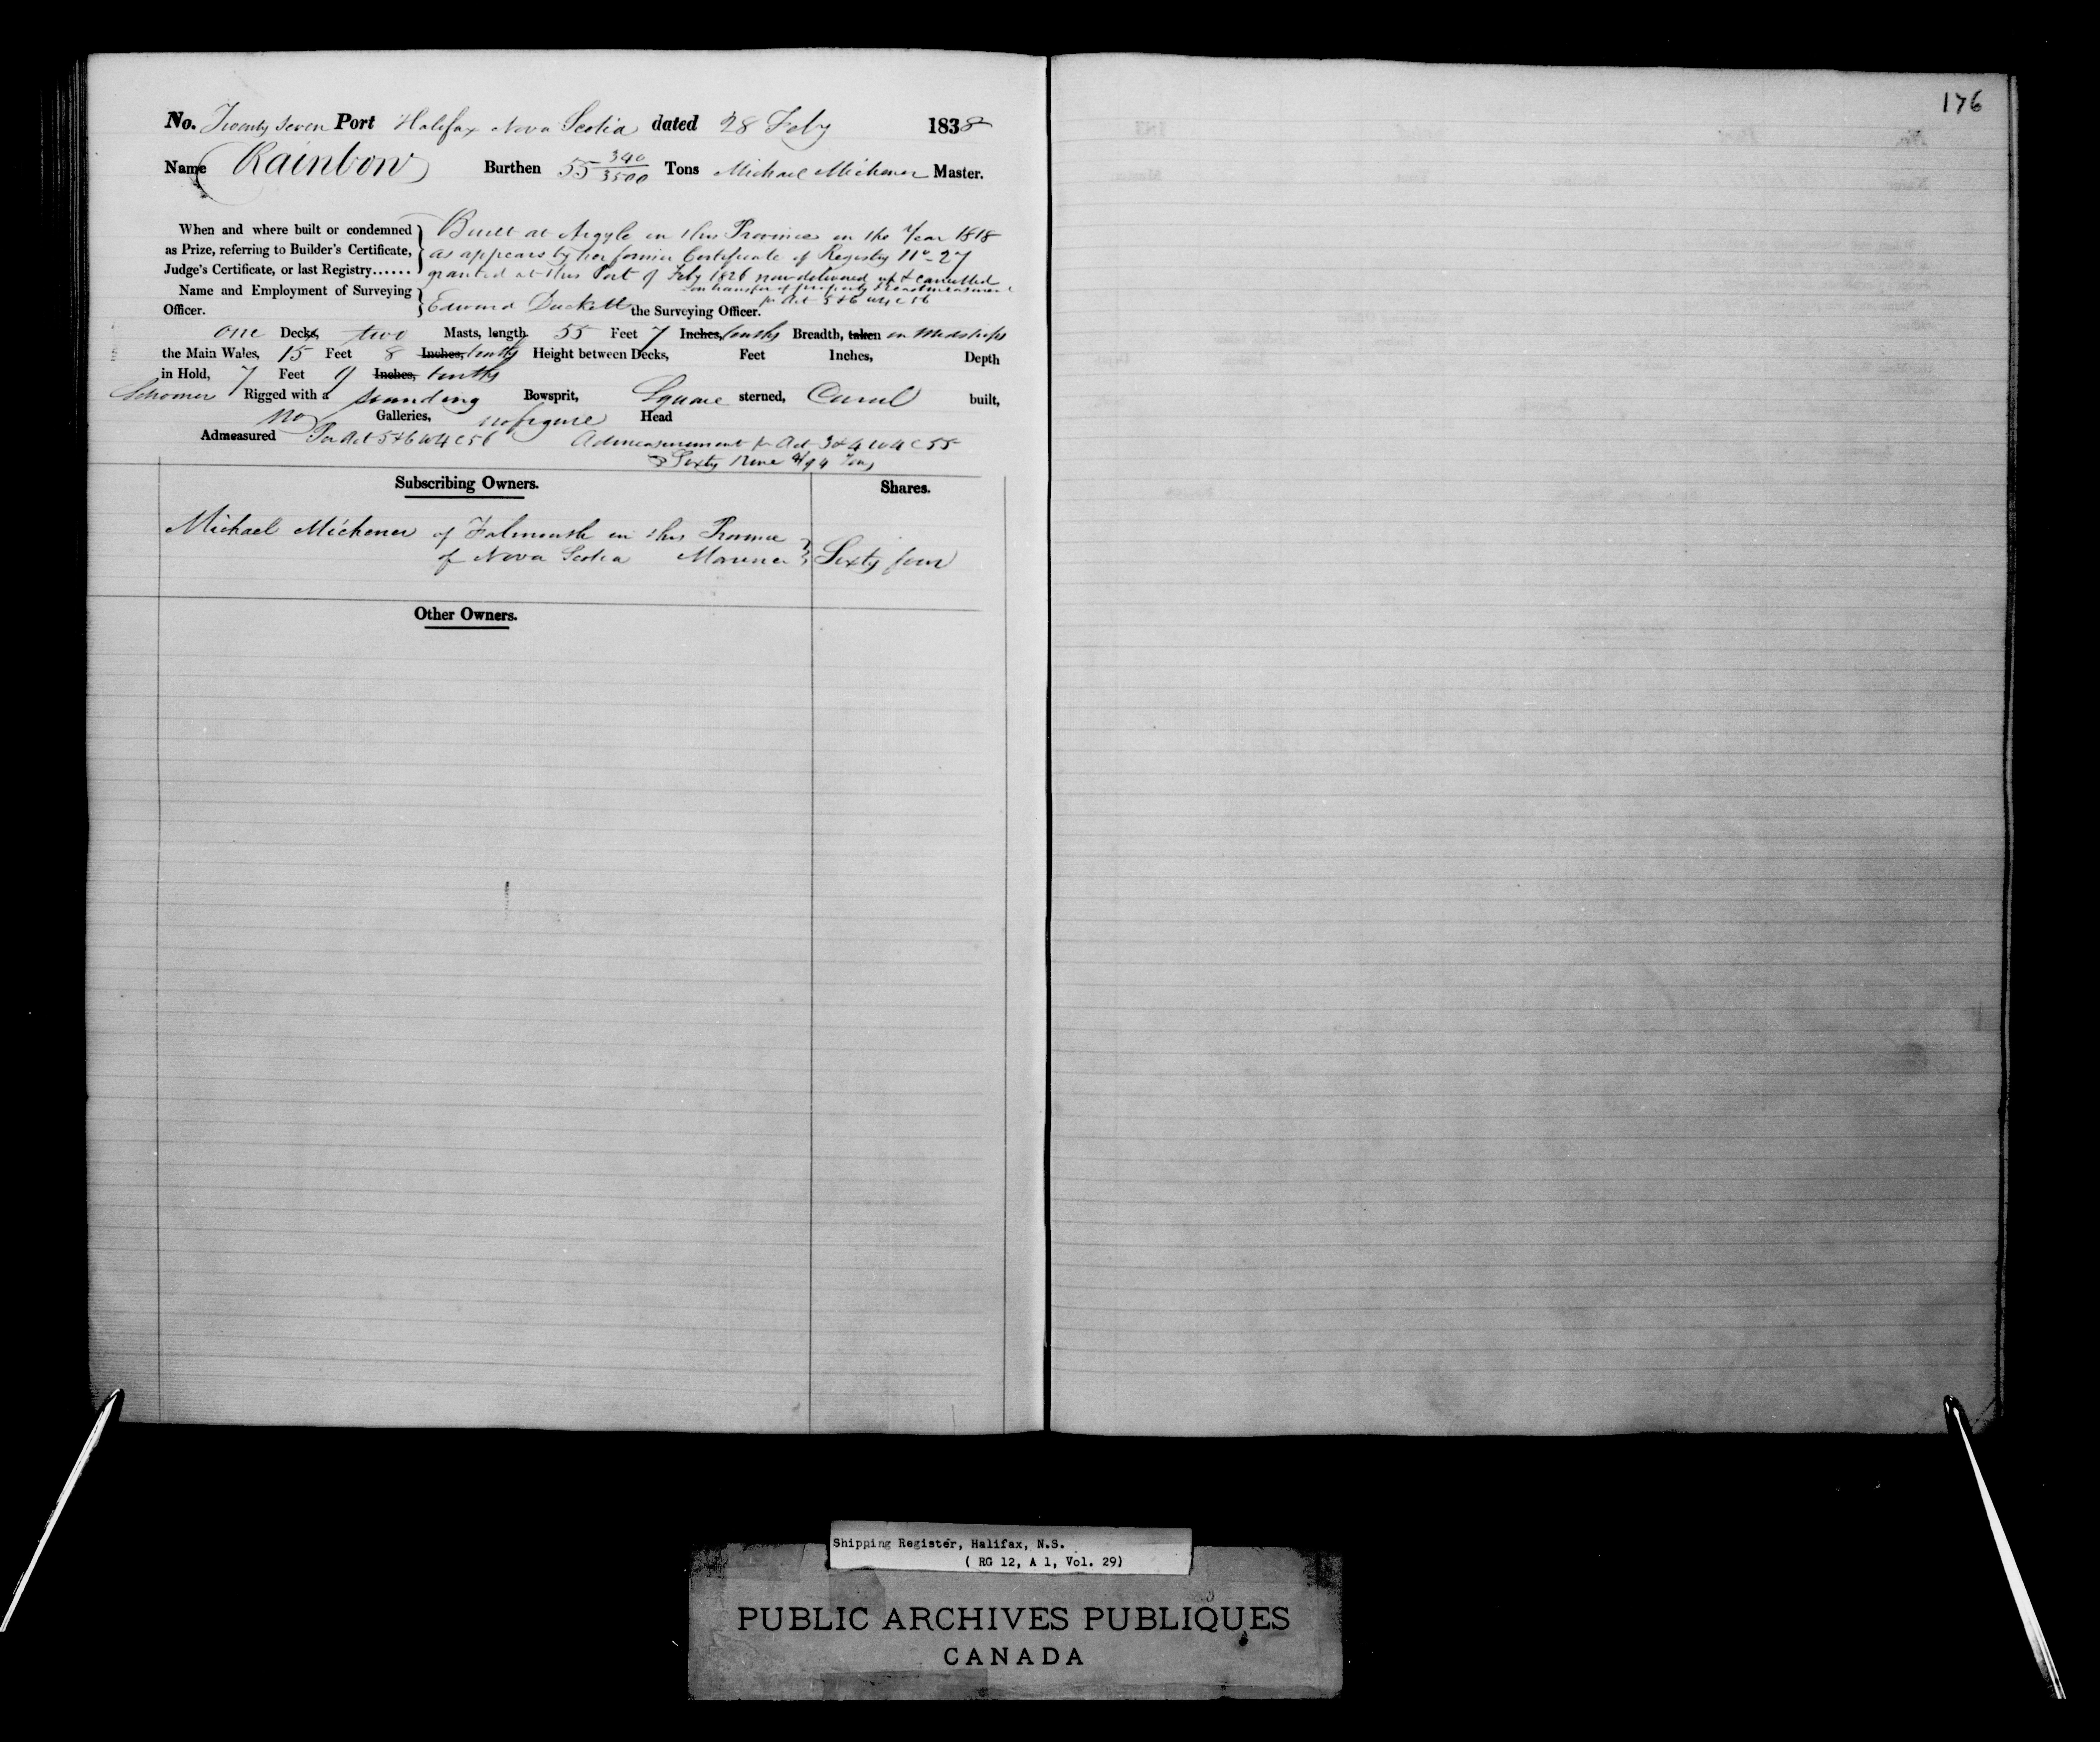 176
No. Twenty Seven Port Halifax Nova Scotia dated 28 Feby 1838
Name Rainbow Burthen 55 340/3500 Tons Michael Michener Master.
When and where built or condemned as Prize, referring to Builder's Certificate, Judge's Certificate, or last Registry......
Built at Argyle in this Province in the Year 1818
as appears by her former Certificate of Registry No. 27
granted at this Port 9 Feby 1826 now delivered up & cancelled
on transfer of property & readmeasurement
pr Act 5 & 6 W 4 C 56
Name and Employment of Surveying Officer.
Edward Duckett the Surveying Officer.
one Decks, two Masts, length 55 Feet 7 Inches, tenths Breadth, taken in Midships
the Main Wales, 15 Feet 8 Inches, tenths Height between Decks, Feet Inches, Depth
in Hold, 7 Feet 9 Inches, tenths
Schooner Rigged with a standing Bowsprit, Square sterned, Carvel built,
no Galleries, no figure Head
Admeasured Per Act 5 & 6 W 4 C 56 Admeasurement pr Act 3 & 4 W 4 C 55
Sixty Nine Tons
Subscribing Owners. Shares.
Michael Michener of Falmouth in this Province
of Nova Scotia Mariner Sixty four
Other Owners.
Shipping Register, Halifax, N.S.
( RG 12, A 1, Vol. 29)
PUBLIC ARCHIVES PUBLIQUES
CANADA